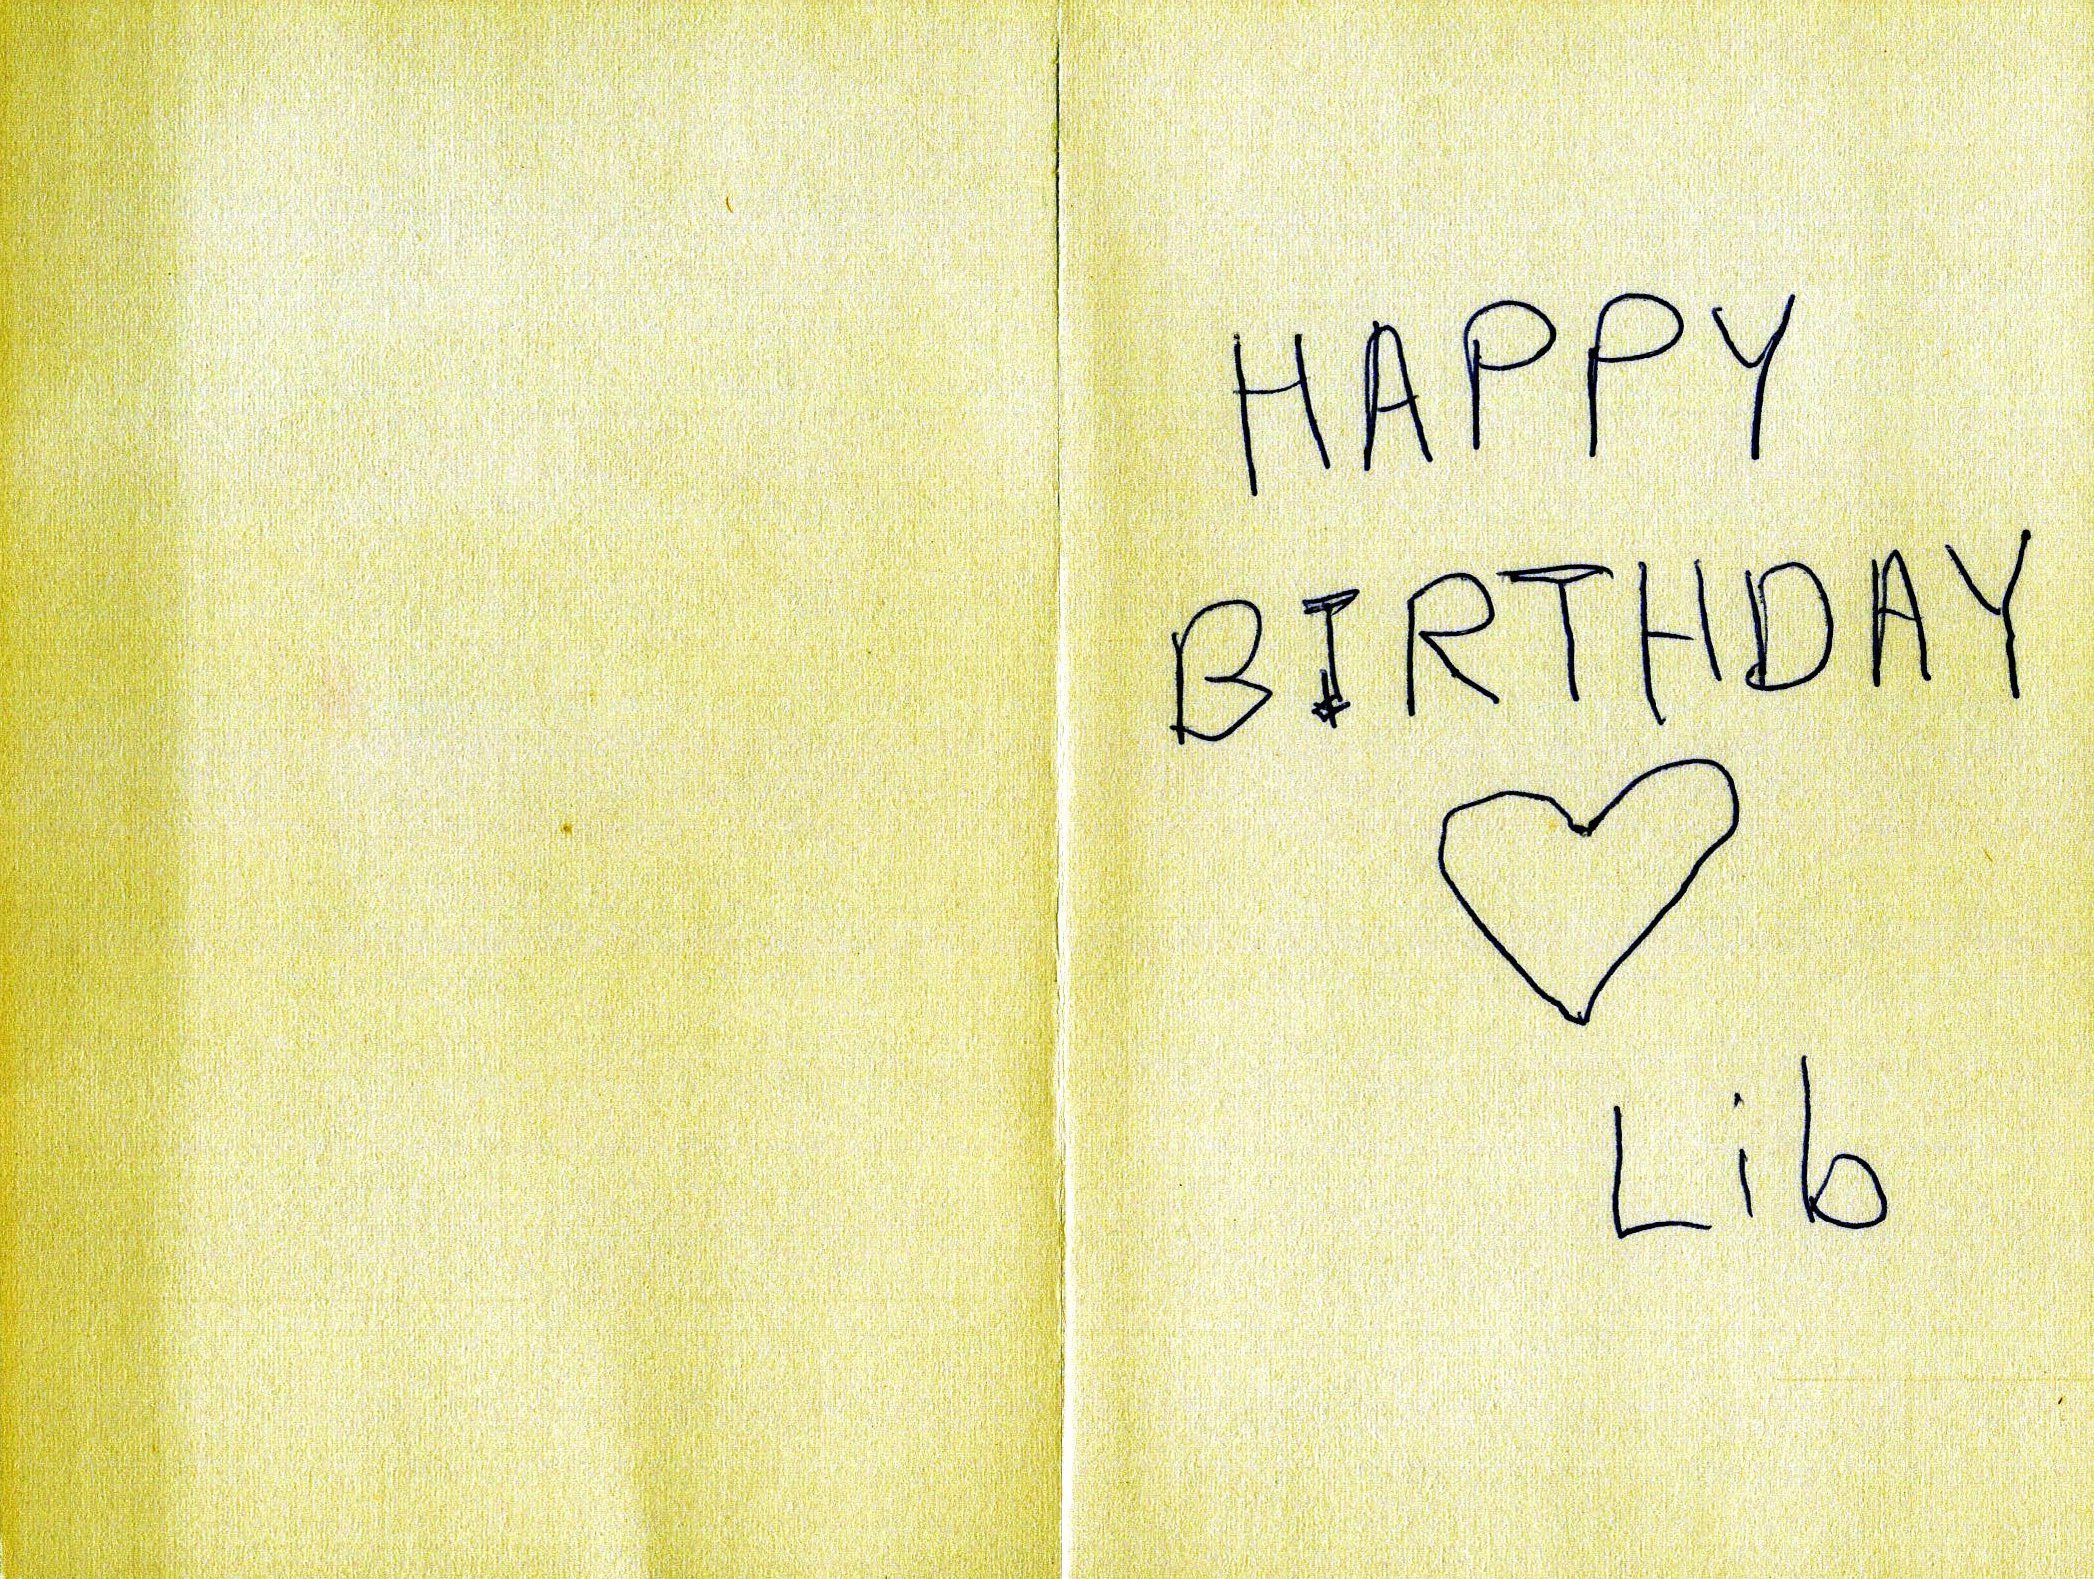 HAPPY
BIRTHDAY
Lib